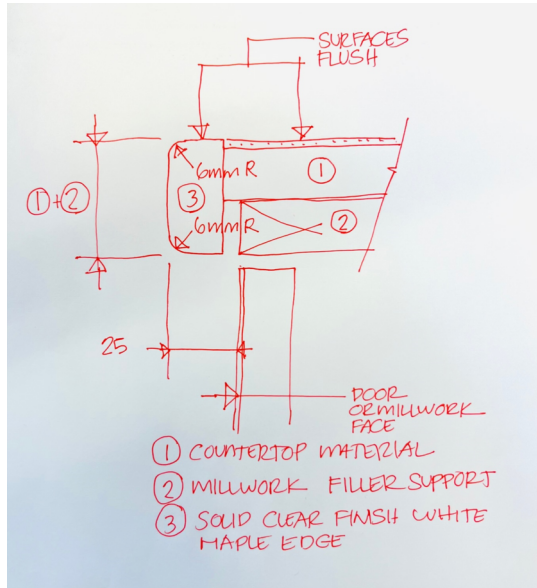 SURFACES
FLUSH
6mm R
①
①+②
③
②
6mm R
25
DOOR
OR MILLWORK
FACE
① COUNTERTOP MATERIAL
② MILLWORK FILLER SUPPORT
③ SOLID CLEAR FINISH WHITE
MAPLE EDGE